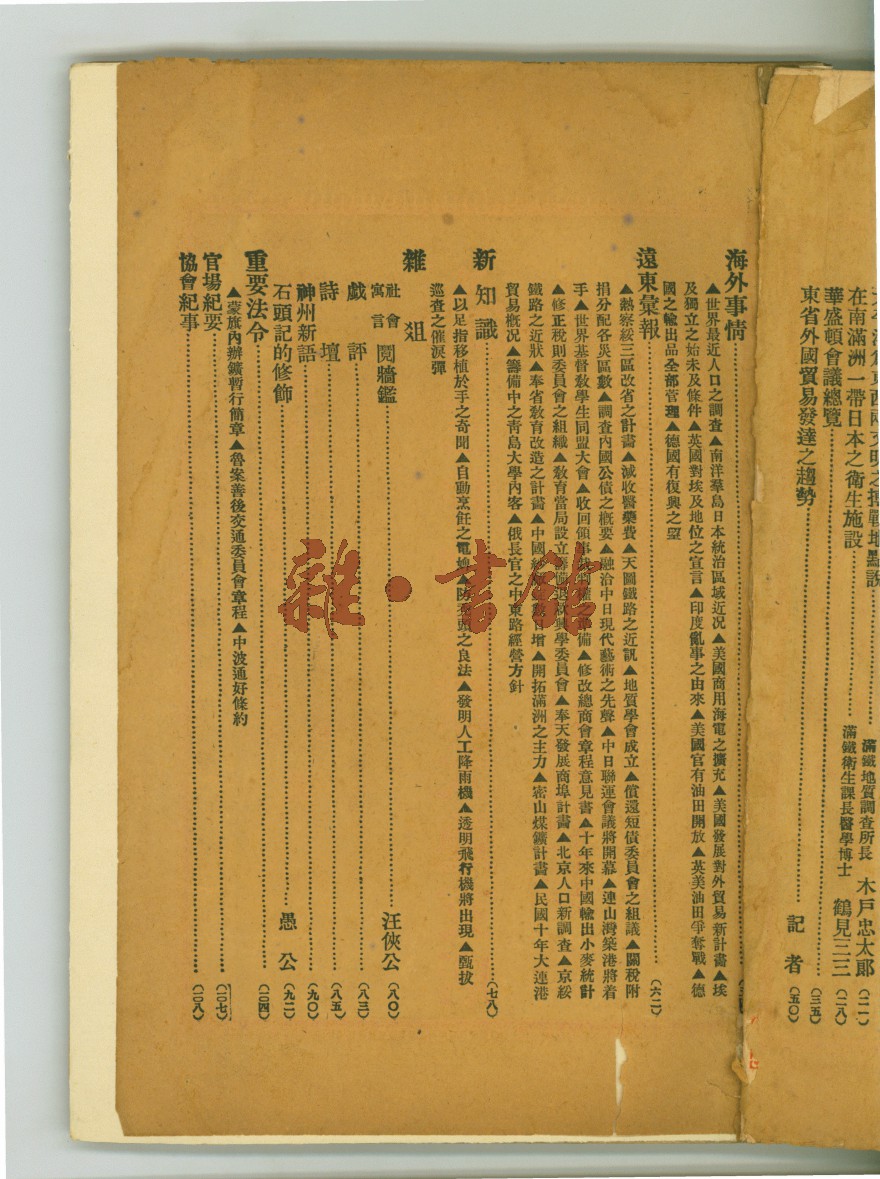 滿鐵地質調查所長 木戸忠太郎 (二一)
在南滿洲一帶日本之衛生施設 滿鐵衛生課長醫學博士 鶴見三三 (二八)
華盛頓會議總覽 (三五)
東省外國貿易發達之趨勢 記者 (五〇)
海外事情
▲世界最近人口之調查▲南洋羣島日本統治區域近況▲美國商用海電之擴充▲美國發展對外貿易新計畫▲埃
及獨立之始末及條件▲英國對埃及地位之宣言▲印度亂事之由來▲美國官有油田開放▲英美油田爭奪戰▲德
國之輸出品全部管理▲德國有復興之望
遠東彙報 (六二)
▲熱察綏三區改省之計畫▲減收醫藥費▲天圖鐵路之近訊▲地質學會成立▲償還短債委員會之組議▲關稅附
捐分配各災區數▲調查內國公債之概要▲融洽中日現代藝術之先聲▲中日聯運會議將開幕▲連山灣築港將着
手▲世界基督敎學生同盟大會▲收回領事裁判權之準備▲修改總商會章程意見書▲十年來中國輸出小麥統計
▲修正稅則委員會之組織▲敎育當局設立籌備退款興學委員會▲奉天發展商埠計畫▲北京人口新調查▲京綏
鐵路之近狀▲奉省敎育改造之計畫▲中國紗廠之數日增▲開拓滿洲之主力▲密山煤鑛計畫▲民國十年大連港
貿易槪況▲籌備中之靑島大學內容▲俄長官之中東路經營方針
新知識 (七八)
▲以足指移植於手之奇聞▲自動烹飪之電爐▲防蚤頭之良法▲發明人工降雨機▲透明飛行機將出現▲甑拔
巡查之催淚彈
雜俎
社會寓言 鬩牆鑑 汪俠公 (八〇)
戯評 (八三)
詩壇 (八五)
神州新語 (九〇)
石頭記的修飾 愚公 (九二)
重要法令 (一〇四)
▲蒙旗內辦鑛暫行簡章▲魯案善後交通委員會章程▲中波通好條約
官場紀要 (一〇七)
協會紀事 (一〇八)
雜·書館